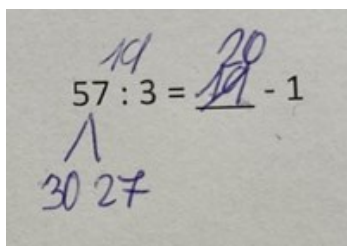 19 20
57 : 3 = 19 - 1
30 27